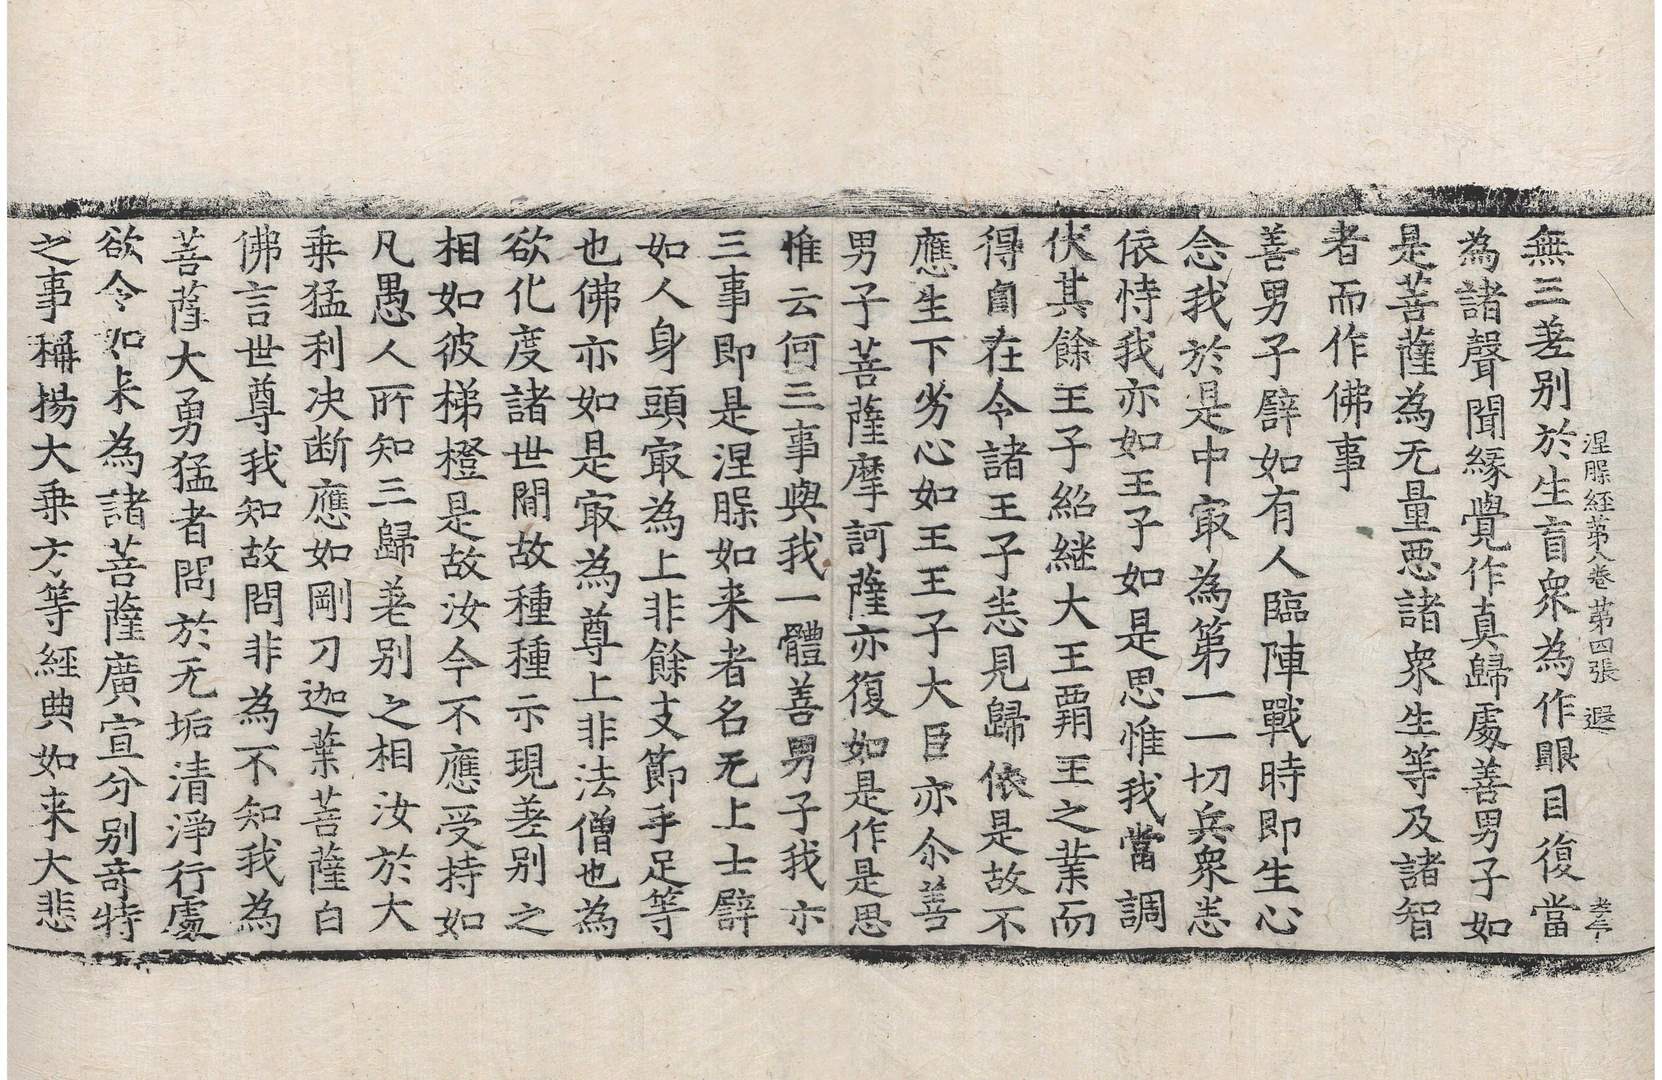 涅槃經第八卷 第四張 遐
無三差別於生盲衆為作眼目復當
為諸聲聞緣覺作真歸處善男子如
是菩薩為无量惡諸衆生等及諸智
者而作佛事
善男子譬如有人臨陣戰時即生心
念我於是中冣為第一一切兵衆悉
依恃我亦如王子如是思惟我當調
伏其餘王子紹継大王覇王之業而
得自在令諸王子悉見歸依是故不
應生下劣心如王王子大臣亦尒善
男子菩薩摩訶薩亦復如是作是思
惟云何三事與我一體善男子我亦
三事即是涅槃如来者名无上士譬
如人身頭冣為上非餘支節手足等
也佛亦如是冣為尊上非法僧也為
欲化度諸世間故種種示現差別之
相如彼梯橙是故汝今不應受持如
凡愚人所知三歸差別之相汝於大
乗猛利决断應如剛刀迦葉菩薩白
佛言世尊我知故問非為不知我為
菩薩大勇猛者問於无垢清淨行處
欲令如来為諸菩薩廣宣分別奇特
之事稱揚大乗方等經典如来大悲